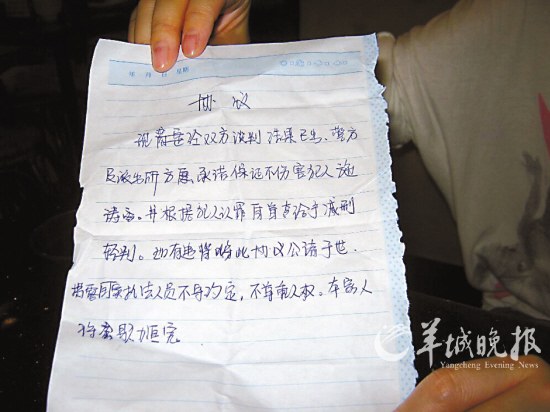 年 月 日 星期
协议
现着重经双方谈判结果已出,警方
及派出所方愿承诺保证不伤害犯人施
诱高。并根据犯人认罪自首者给于减刑
轻判。如有违背将此协议公诸于世.
揭露国家执法人员不守约定,不尊重人权。本家人
将采取
羊城晚报
Yangcheng Evening News